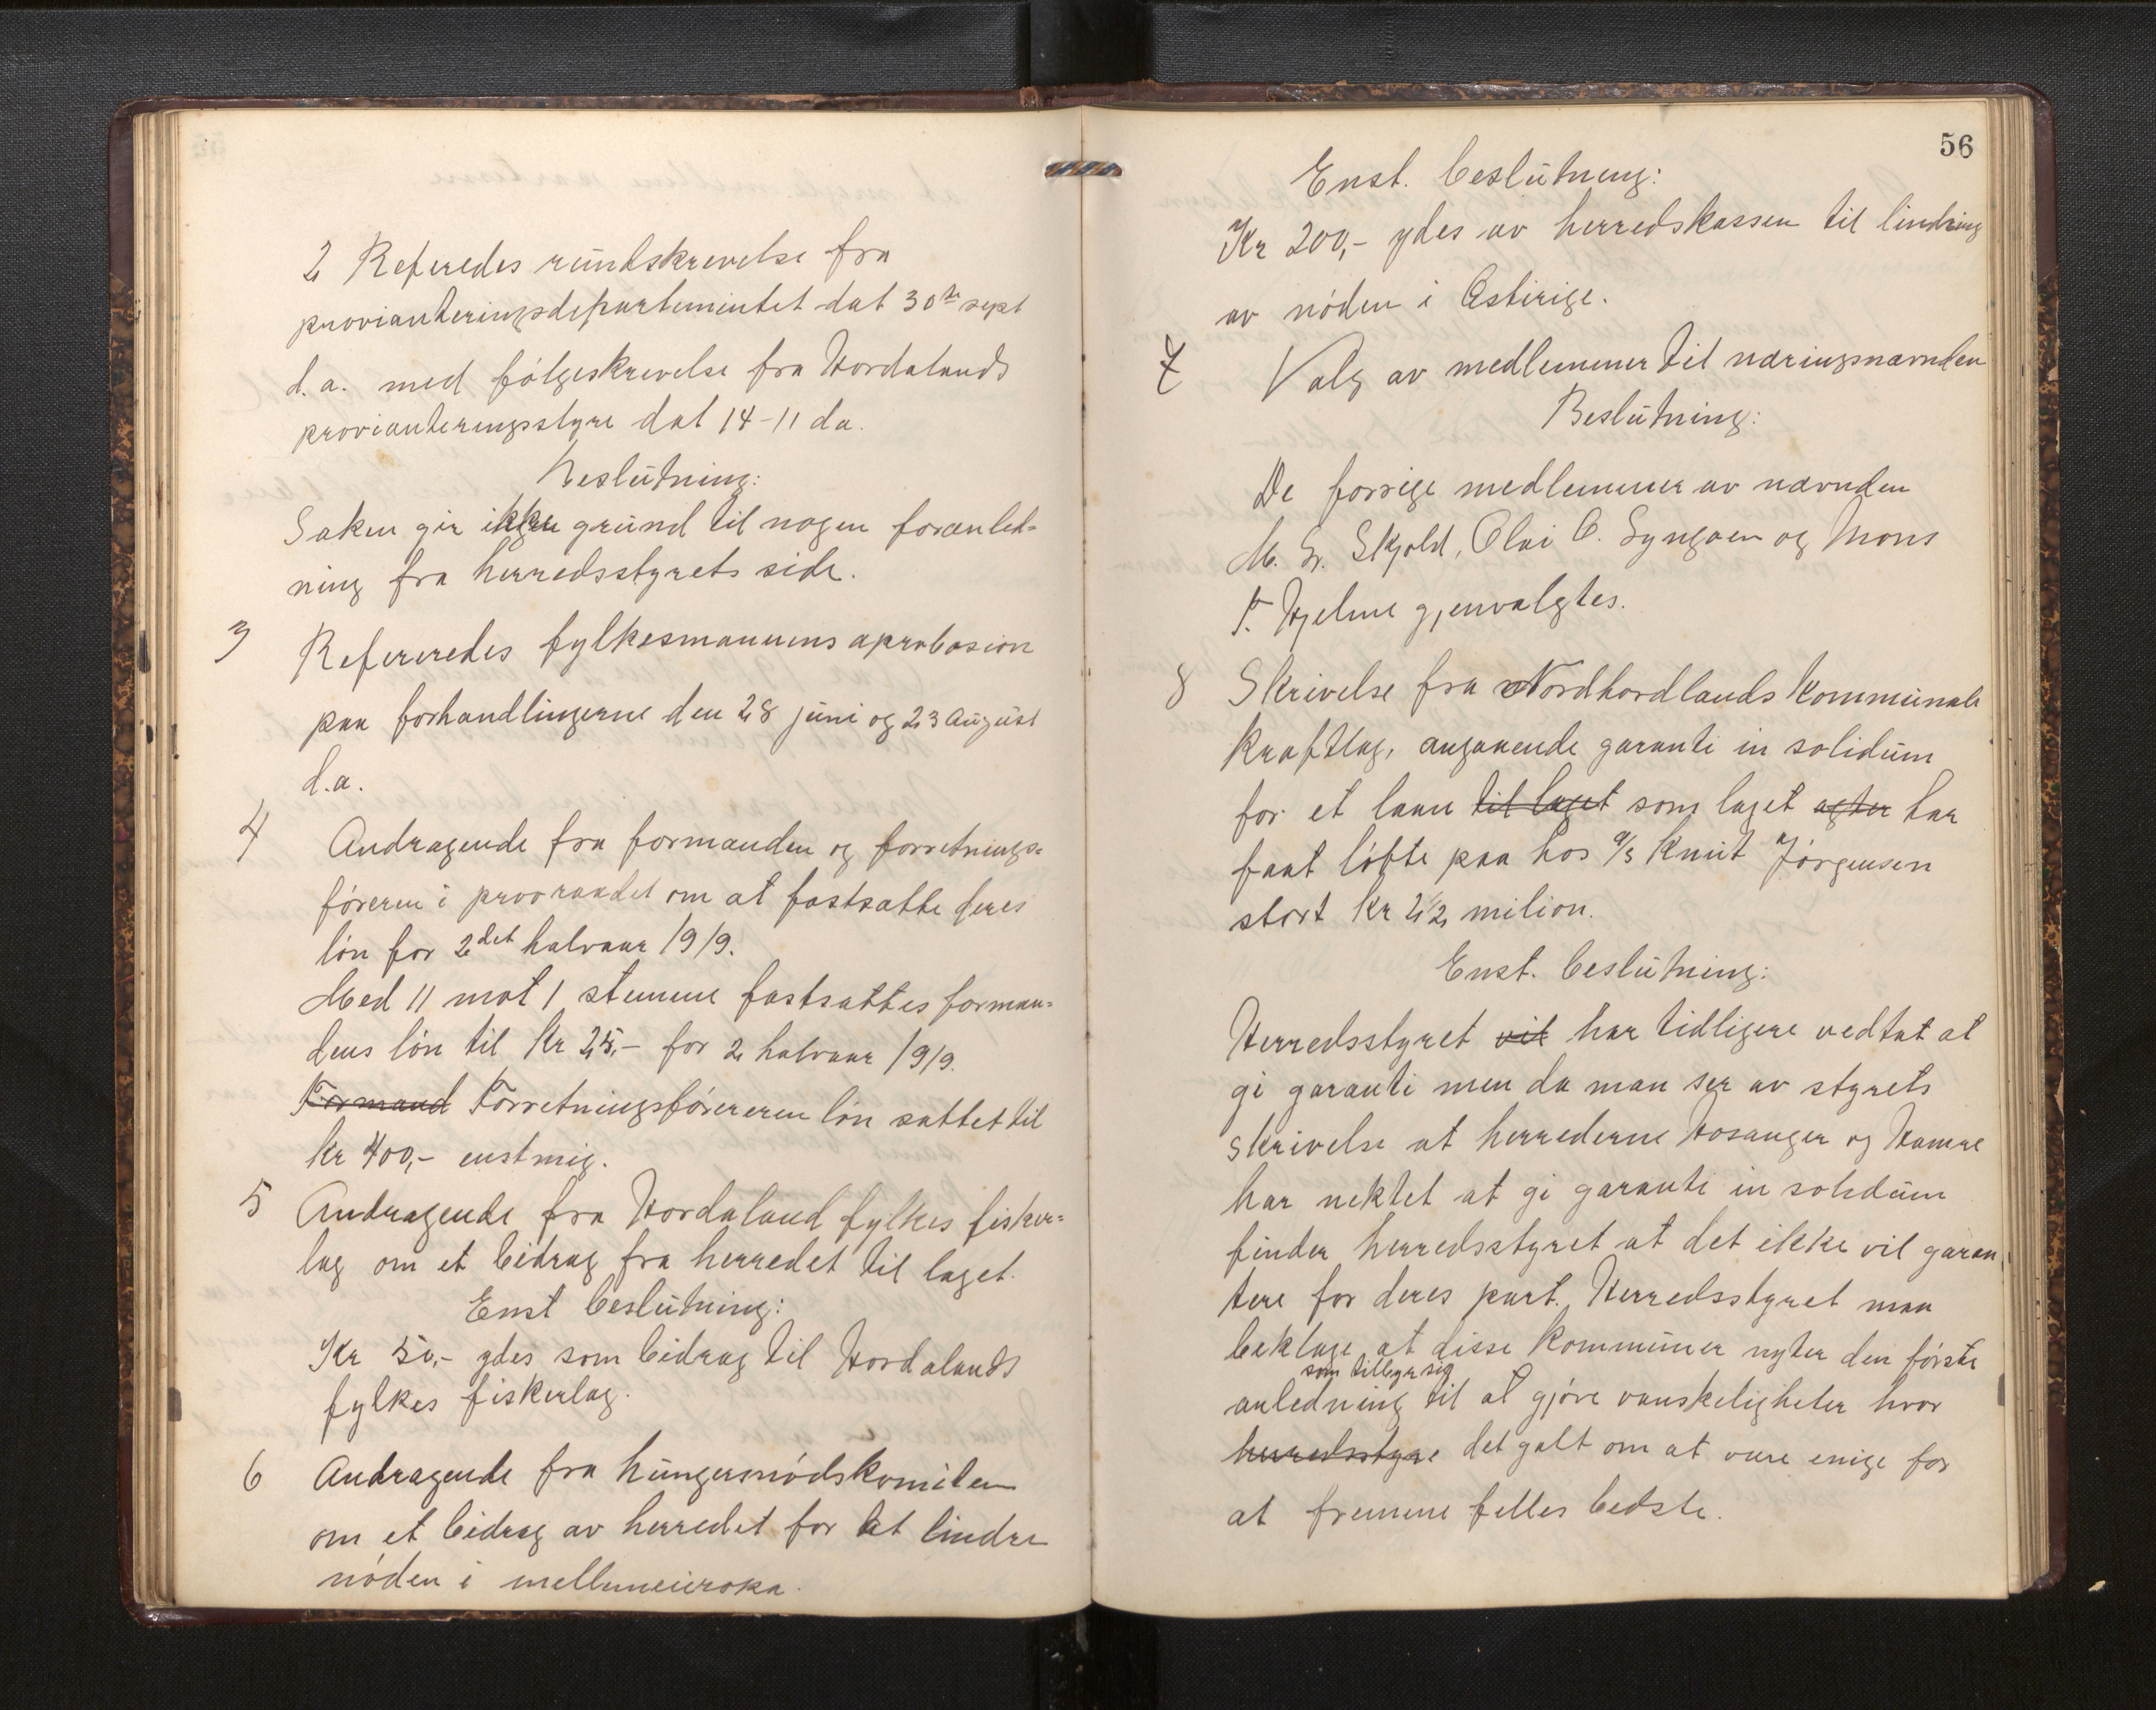 2 Referedes rundskrevelse fra
provianteringsdepartementet dat 30te sept
d.a. med følgeskrevelse fra Hordalands
provianteringsstyre dat 14-11 da.
Beslutning:
Saken gir ikke grund til nogen foranled=
ning fra herredsstyrets side.
3 Refereredes fylkesmannens aprobasion
paa forhandlingerne den 28 juni og 23 August
d.a.
4 Andragende fra formanden og forretnings=
føreren i provraadet om at fastsætte deres
løn for 2det halvaar 1919.
Med 11 mot 1 stemme fastsattes forman=
dens løn til Kr 25,- for 2 halvaar 1919.
Formand Forretningsførereren løn sattet til
kr 400,- enstmig.
5 Andragende fra Hordaland fylkes fisker=
lag om et bidrag fra herredet til laget.
Enst beslutning:
Kr 50,- ydes som bidrag til Hordalands
fylkes fiskerlag.
6 Andragende fra hungersnødskomiteen
om et bidrag av herredet for at lindre
nøden i mellemeuropa.
56
Enst. beslutning:
Kr 200,- ydes av herredskassen til lindring
av nøden i Østirige.
7 Valg av medlemmer til næringsnævnden
Beslutning:
De forrige medlemmer av nævnden
M. G. Skjold, Olai O. Syngøen og Mons
T. Hjelme gjenvalgtes.
8 Skrivelse fra Nordhordlands Kommunale
Kraftlag, angaaende garanti in solidum
for et laan til laget som laget agter har
faat løfte paa hos a/s Knut Jørgensen
stort Kr 2 1/2 milion.
Enst. beslutning:
Herredsstyret vil har tidligere vedtat at
gi garanti men da man ser av styrets
skrivelse at herrederne Hosanger og Hamre
har nektet at gi garanti in solidum
finder herredsstyret at det ikke vil garan
tere for deres part. Herredsstyret maa
beklage at disse Kommuner nyter den første
som tilbyr sig
anledning til at gjøre vanskeligheter hvor
herredsstyre det galt om at være enige for
at fremme felles bedste.